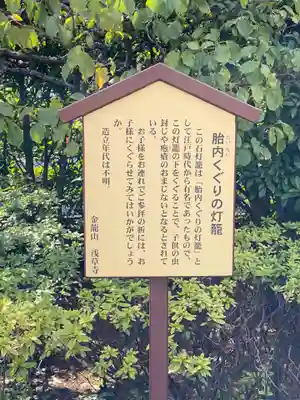 胎内くぐりの灯籠
この石灯籠は「胎内くぐりの灯籠」と
して江戸時代から有名であったもので、
この灯籠の下をくぐることで、子供の虫
封じや疱瘡のおまじないとなるとされて
いる。
お子様をお連れでご参拝の折には、お
子様にくぐらせてみてはいかがでしょう
か。
造立年代は不明。
金龍山 浅草寺